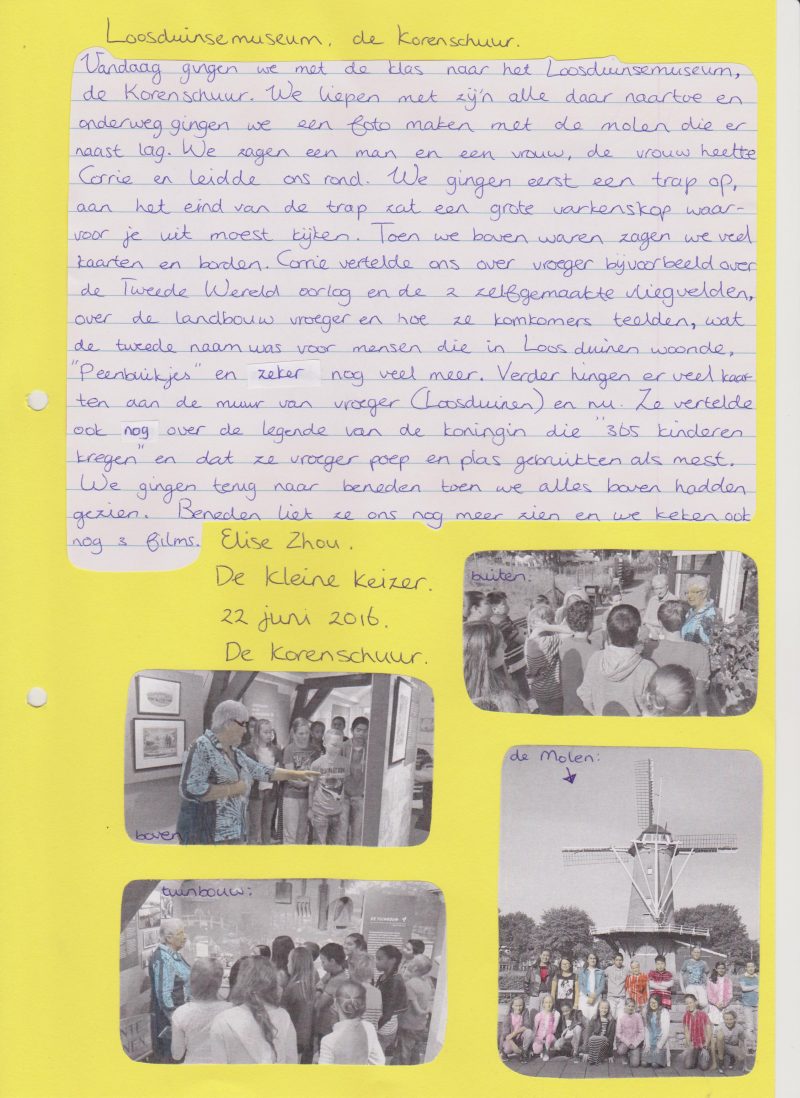 Loosduinsemuseum, de Korenschuur.
Vandaag gingen we met de klas naar het Loosduinsemuseum,
de Korenschuur. We liepen met zij'n alle daar naartoe en
onderweg gingen we een foto maken met de molen die er
naast lag. We zagen een man en een vrouw, de vrouw heette
Corrie en leidde ons rond. We gingen eerst een trap op,
aan het eind van de trap zat een grote varkenskop waar-
voor je uit moest kijken. Toen we boven waren zagen we veel
kaarten en borden. Corrie vertelde ons over vroeger bijvoorbeeld over
de Tweede Wereld oorlog en de 2 zelfgemaakte vliegvelden,
over de landbouw vroeger en hoe ze komkomers teelden, wat
de tweede naam was voor mensen die in Loosduinen woonde,
"Peenbuikjes" en zeker nog veel meer. Verder hingen er veel kaar
ten aan de muur van vroeger (Loosduinen) en nu. Ze vertelde
ook nog over de legende van de koningin die "365 kinderen
kregen" en dat ze vroeger poep en plas gebruikten als mest.
We gingen terug naar beneden toen we alles boven hadden
gezien. Beneden liet ze ons nog meer zien en we keken ook
nog 3 films.
Elise Zhou.
De Kleine Keizer.
22 juni 2016.
De Korenschuur.
buiten:
boven
de Molen:
tuinbouw:
DE TUINBOUW